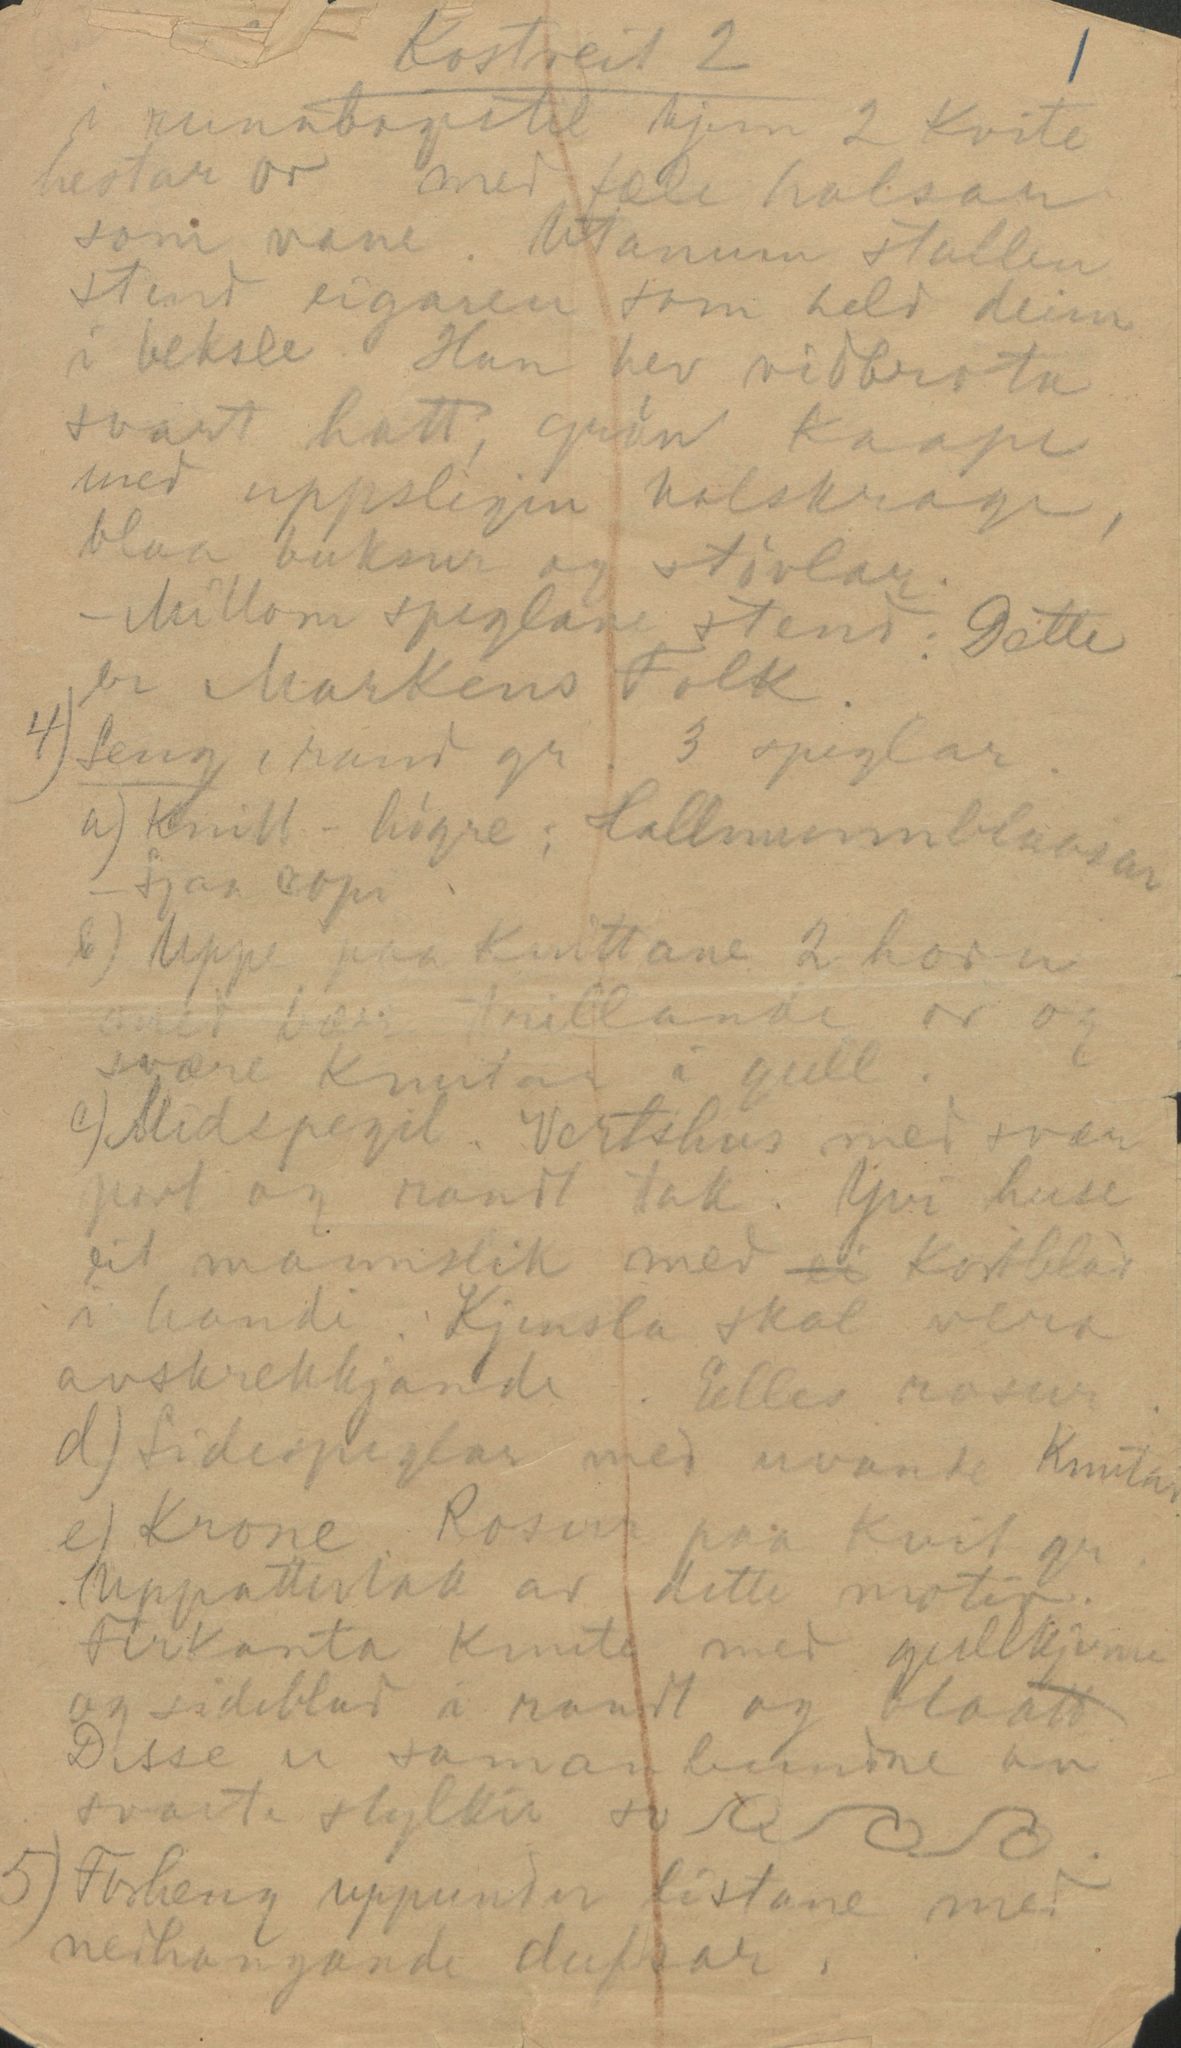 Kostveit 2
1
i runabogestil kjem 2 kvite
hestar or med fæle halsar
som vane. Utanum stallen
stend eigaren som held deim
i beksle. Han hev vidbrota
svart hatt, grön kaape
med uppslegin halskrage,
blaa buksur og stövlar.
- Millom speglane stend: Dette
er Markens Folk.
4) Seng, raud gr. 3 speglar.
a) Knitt - högre; Hallmunnblaasar
- Sjaa copi
b) Uppe paa Knittane 2 horn
med bær trillande or og
svære Knutar i gull.
c) Midspegil. Vertshus med svær
port og raudt tak. Yvi huse
eit mannslik med ei Kortblad
i handi. Kjensla skal vera
avskrekkjande. Elles rosur.
d) Sidespeglar med uvande Knutar
e) Krone. Rosur paa kvit gr.
Uppattertak av dette motiv.
Firkanta Knute med gullkjerne
og sideblad i raudt og blaatt
Disse er samanbundne av
svarte stykkir so
5) Forheng uppunder listane med
nedhangande duskar.